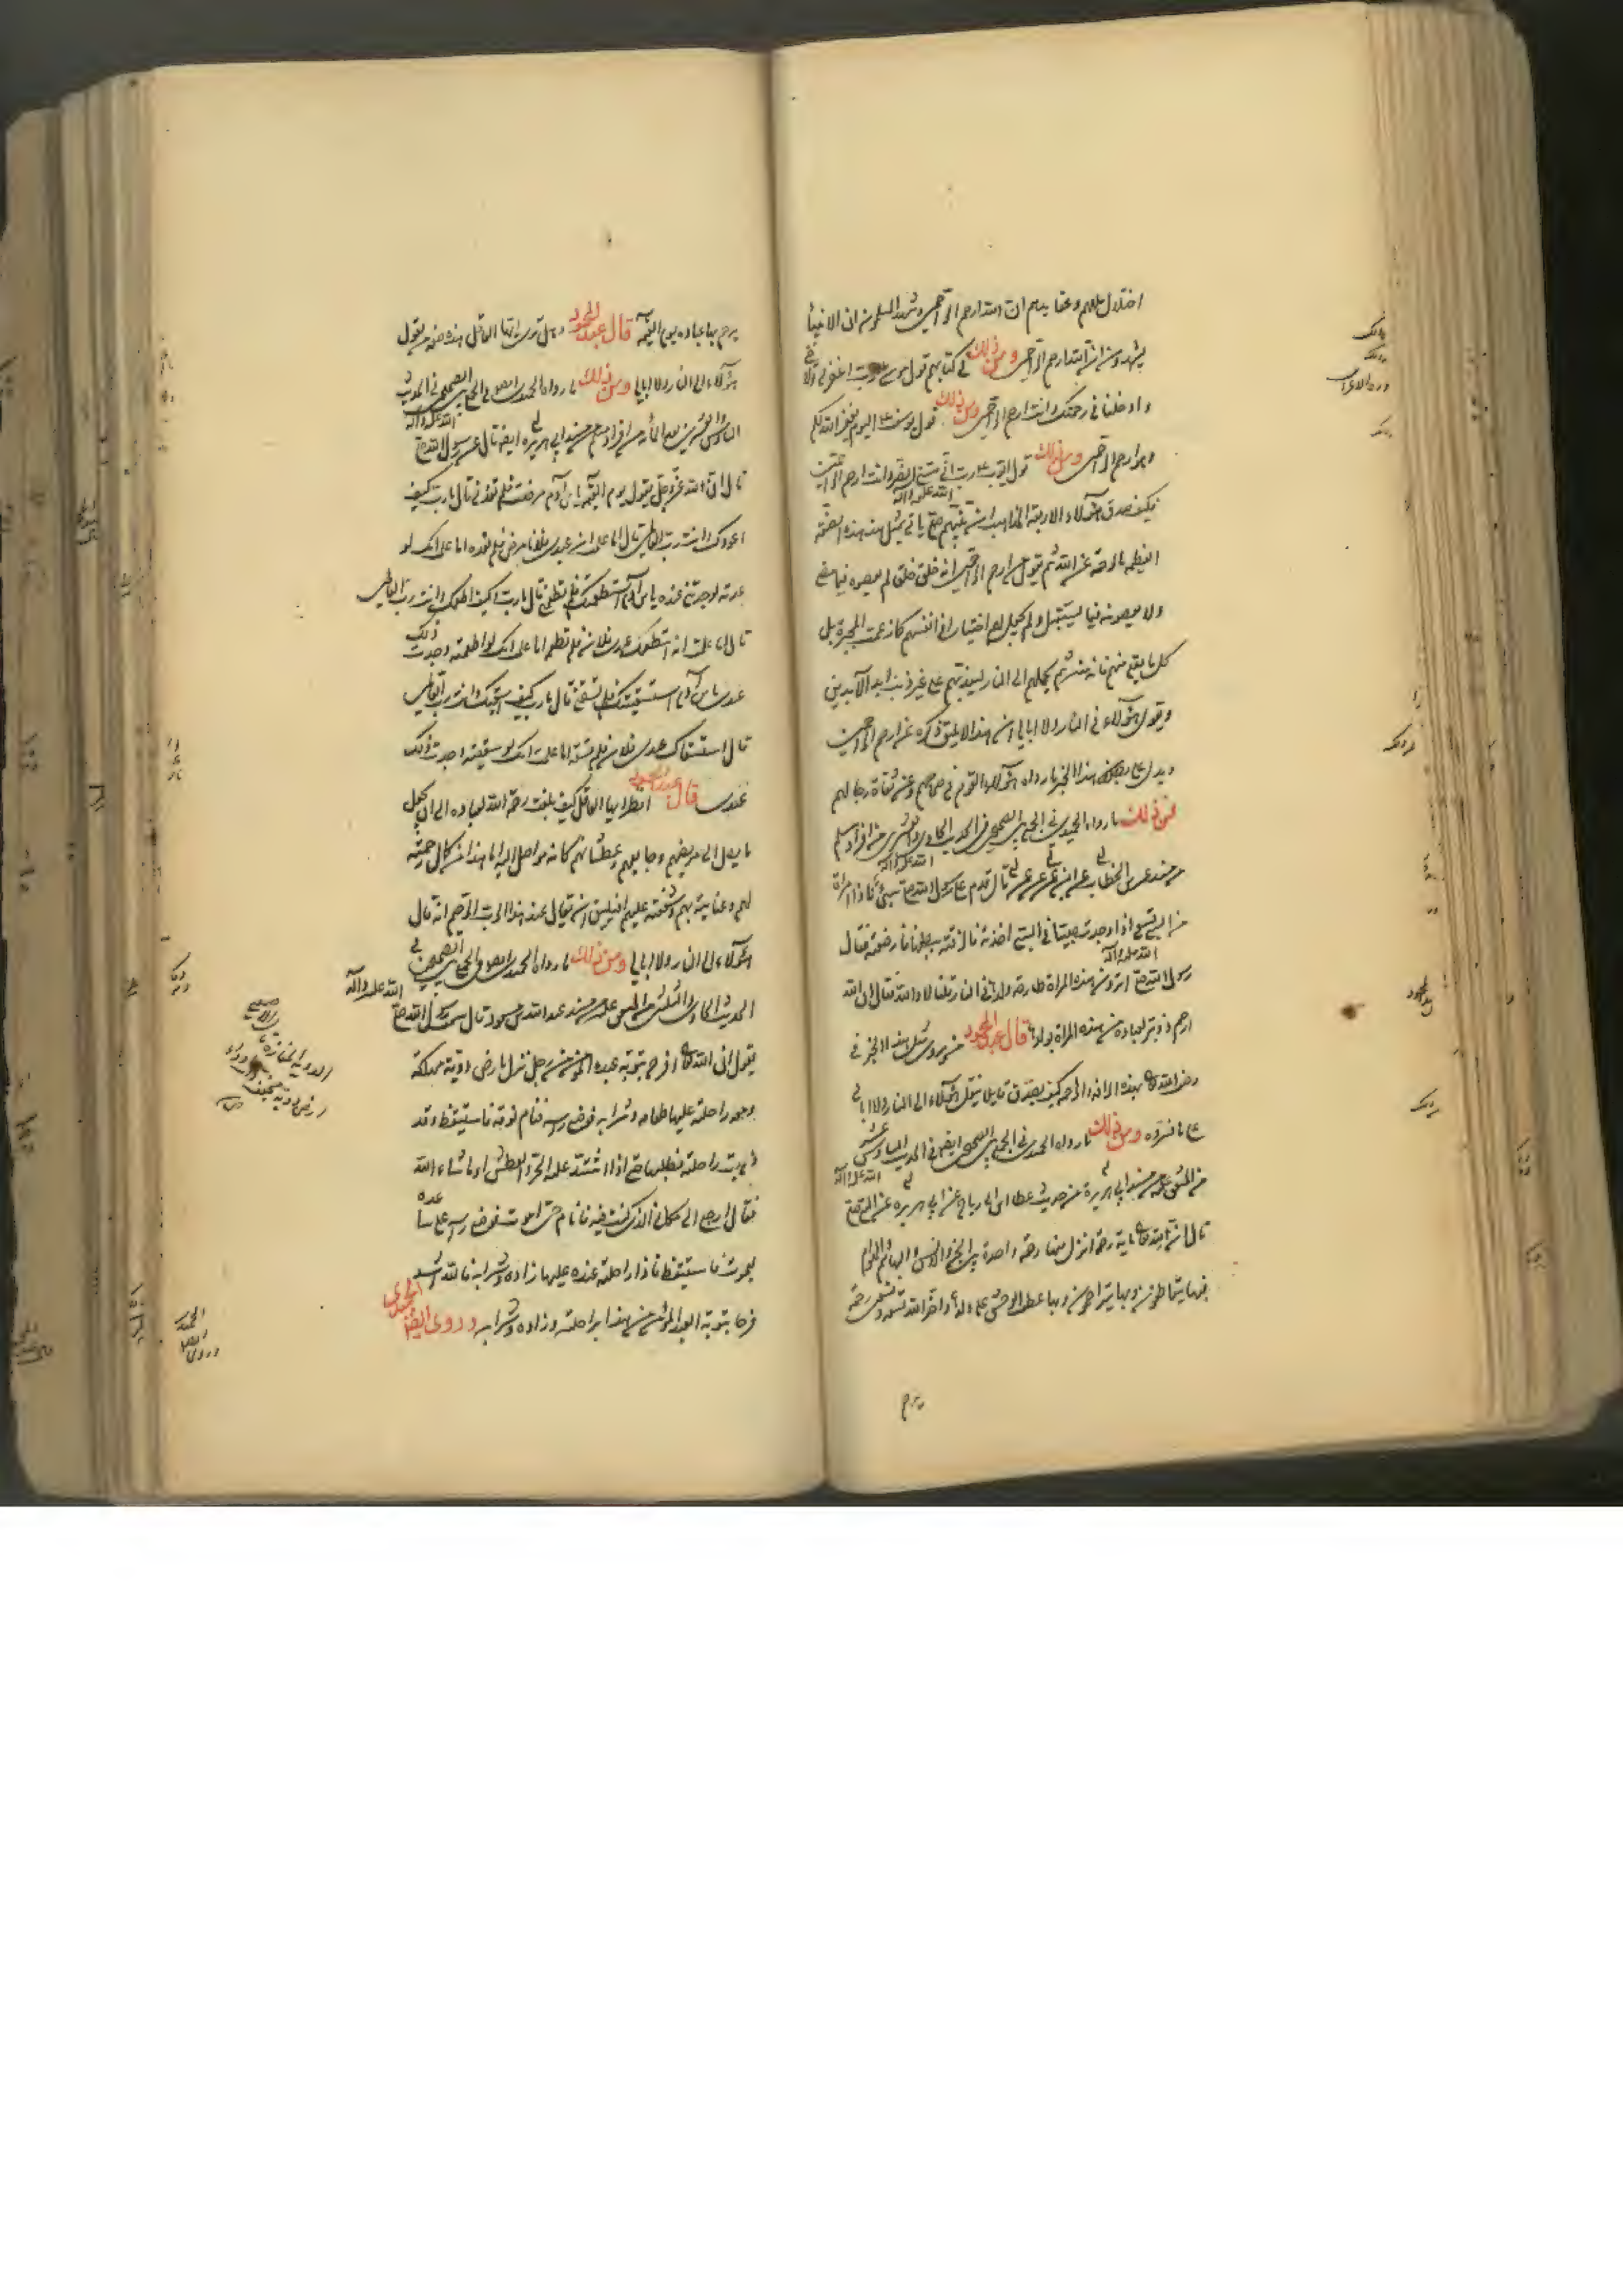 اختلال عقلهم وعقايدهم ان الله ارحم الراحمين وشهد المسلمون ان الانبيا
يشهدون ان الله ارحم الراحمين ومن ذلك في كتابهم قول موسى رب اغفر لي ولاخي
وادخلنا في رحمتك وانت ارحم الراحمين ومن ذلك قول يوسف ع اليوم يغفر الله لكم
وهو ارحم الراحمين ومن ذلك قول ايوب ع رب اني مسني الضر وانت ارحم الراحمين
فكيف صدق هؤلاء الاربعة المذاهب ان نبيهم صلى الله عليه وآله ياتي بمثل هذه الصفة
العظيمة بالرحمة عن الله ثم يقول عن ارحم الراحمين انه خلق خلق لم يعصوه فيما مضى
ولا يعصونه فيما يستقبل ولم يجعل لهم اختيارا في انفسهم كما زعمت المجبرة بل
كل ما يقع منهم فانه منه ثم يحملهم الى النار ليعذبهم على غير ذنب ابد الآبدين
ويقول هؤلاء في النار ولا ابالي ان هذا لا يليق ذكره عن ارحم الراحمين
ويدل على بطلان هذا الخبر ما رواه هؤلاء القوم في صحاحهم وعن ثقاة رجالهم
فمن ذلك ما رواه الحميدي في الجمع بين الصحيحين في الحديث الحادي والعشرين من افراد مسلم
من مسند عمر بن الخطاب عن ابن عمر عن عمر قال قدم على رسول الله صلى الله عليه وآله بسبي فاذا امراة
من السبي تسعى اذا وجدت صبيا في السبي اخذته فالزقته ببطنها فارضعته فقال
رسول الله صلى الله عليه وآله اترون هذه المراة طارحة ولدها في النار قلنا لا والله فقال ان الله
ارحم بعباده من هذه المراة بولدها قال عبد المحمود من يروي مثل هذا الخبر في
وصف الله تعالى بهذه الرافة والرحمة كيف يصدق قايلا ينقل هؤلاء الى النار ولا ابالي
على ما فسروه ومن ذلك ما رواه الحميدي في الجمع بين الصحيحين ايضا في الحديث السادس عشر
من المتفق عليه من مسند ابي هريرة من حديث عطا بن ابي رباح عن ابي هريرة عن النبي صلى الله عليه وآله
قال ان لله تعالى ماية رحمة انزل منها رحمة واحدة بين الجن والانس والبهائم والهوام
فبها يتعاطفون وبها يتراحمون وبها يعطف الوحش على ولدها واخر الله تسعة وتسعين رحمة
يرحم
يرحم بها عباده يوم القيمة قال عبد المحمود وهل ترى ايها العاقل هذه صفة من يقول
هؤلاء الى النار ولا ابالي ومن ذلك ما رواه الحميدي ايضا في الجمع بين الصحيحين في الحديث
السادس والعشرين بعد المائة من افراد مسلم من مسند ابي هريرة ايضا قال عن رسول الله صلى الله عليه وآله
قال ان الله عز وجل يقول يوم القيمة يا بن آدم مرضت فلم تعدني قال يا رب كيف
اعودك وانت رب العالمين قال اما علمت ان عبدي فلانا مرض فلم تعده اما علمت انك لو
عدته لوجدتني عنده يا بن آدم استطعمتك فلم تطعمني قال يا رب وكيف اطعمك وانت رب العالمين
قال اما علمت انه استطعمك عبدي فلان فلم تطعمه اما علمت انك لو اطعمته وجدت ذلك
عندي يا بن آدم استسقيتك فلم تسقني قال يا رب كيف اسقيك وانت رب العالمين
قال استسقاك عبدي فلان فلم تسقه اما علمت انك لو سقيته وجدت ذلك
عندي قال عبد المحمود انظر ايها العاقل كيف بلغت رحمة الله لعباده الى ان يجعل
ما يصل الى مريضهم وجايعهم وعطشانهم كانه مواصل اليه اما هذا من كمال رحمته
لهم وعنايته بهم وشفقته عليهم افيليق ان يقال عن هذا الرب الرحيم انه قال
هؤلاء الى النار ولا ابالي ومن ذلك ما رواه الحميدي ايضا في الجمع بين الصحيحين في
الحديث الحادي والثلاثين من المتفق عليه من مسند عبد الله بن مسعود قال سمعت رسول الله صلى الله عليه وآله
يقول ان الله تعالى افرح بتوبة عبده المؤمن من رجل نزل بارض دوية مهلكة
ومعه راحلته عليها طعامه وشرابه فوضع راسه فنام نومة فاستيقظ وقد
ذهبت راحلته فطلبها حتى اذا اشتد عليه الحر والعطش او ما شاء الله
فقال ارجع الى مكاني الذي كنت فيه فانام حتى اموت فوضع راسه على ساعده
ليموت فاستيقظ فاذا راحلته عنده عليها زاده وشرابه فالله اشد
فرحا بتوبة العبد المؤمن من هذا براحلته وزاده وشرابه وروى الحميدي ايضا